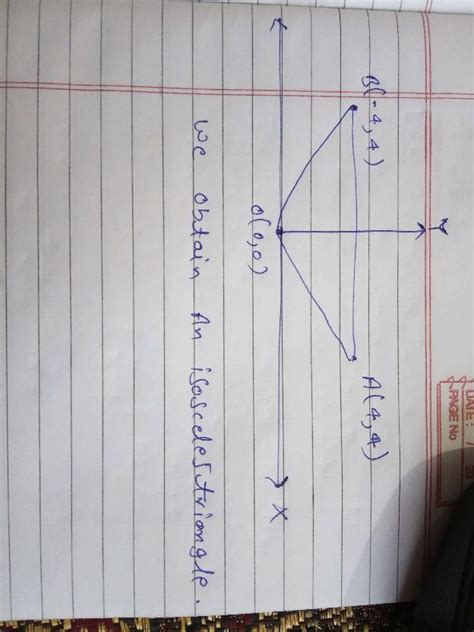 DATE:
PAGE No
Y
B(-4,4)
A(4,4)
O(0,0)
X
We obtain An isosceles triangle.